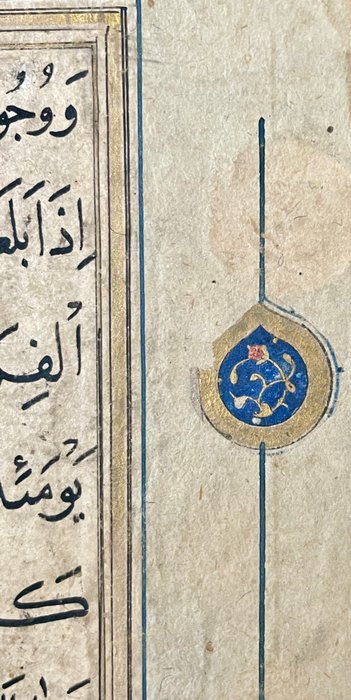 وَوُجُو
اِذَا بَلَغَ
الْفِرَ
يَوْمَئِ
كَ